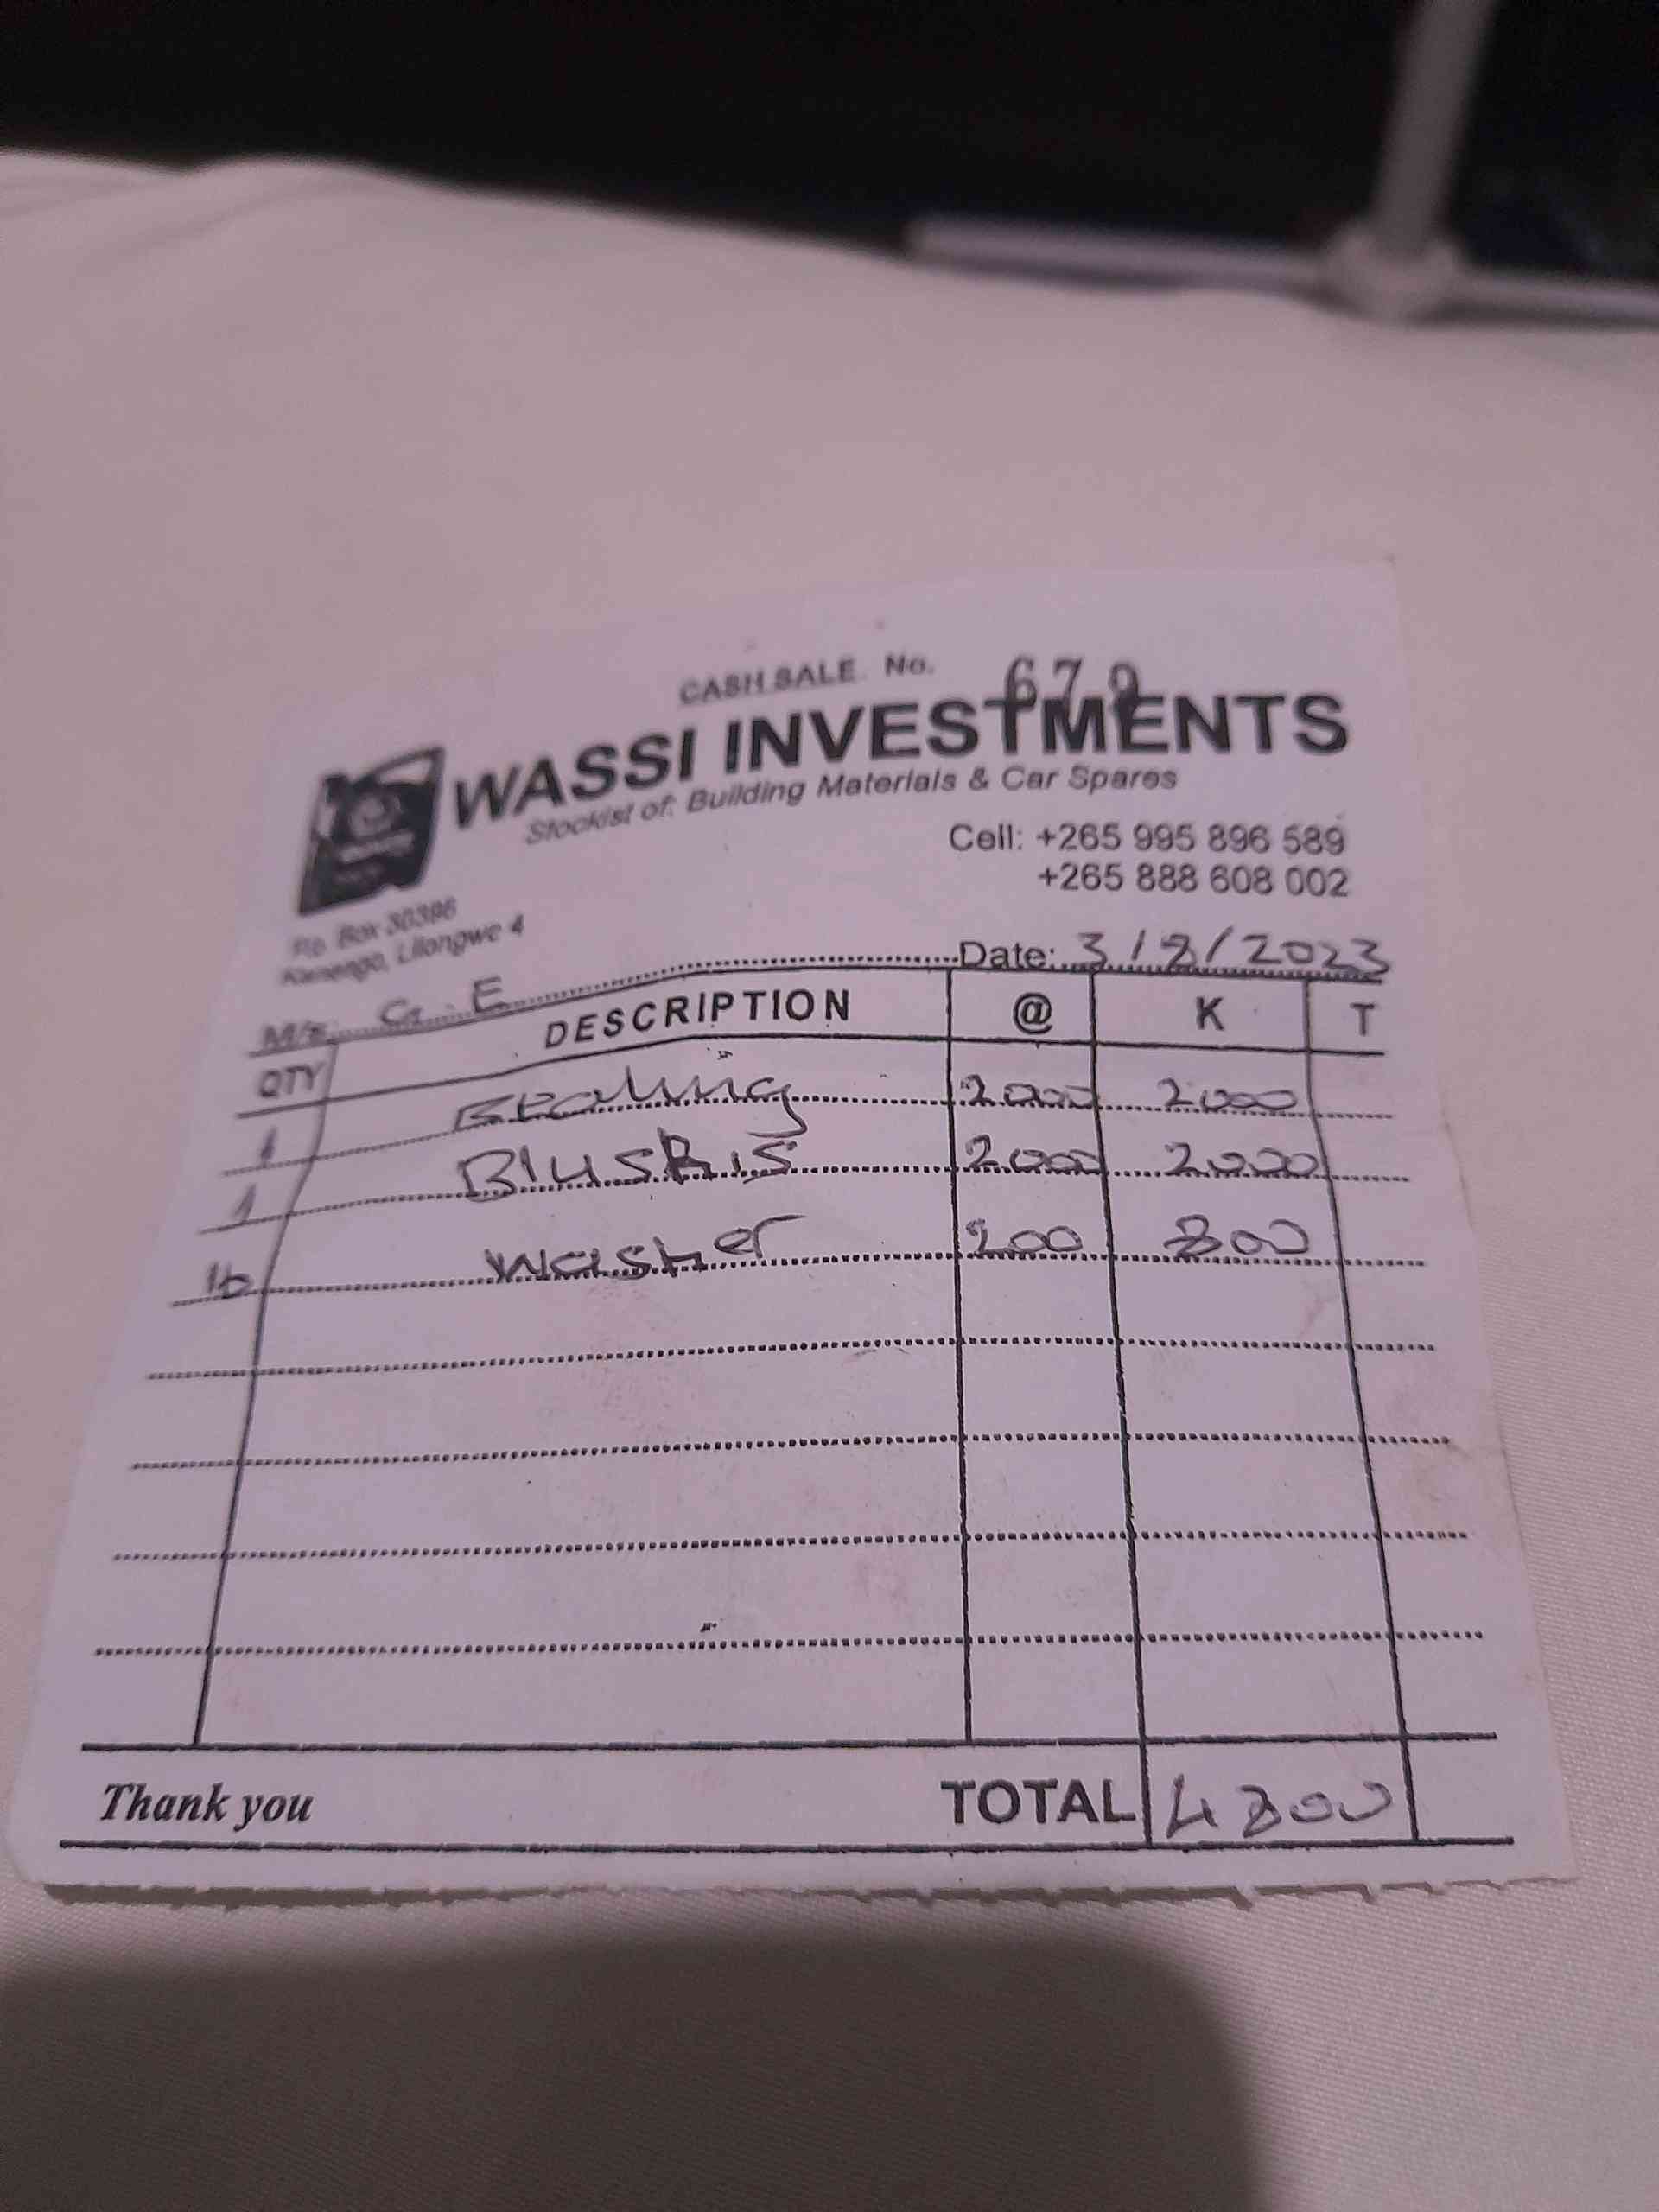 CASH SALE No. 679
WASSI INVESTMENTS
Stockist of: Building Materials & Car Spares
Cell: +265 995 896 589
+265 888 608 002
P.o. Box 30396
Kanengo, Lilongwe 4
M/s. G.E Date: 3/8/2023
QTY DESCRIPTION @ K T
1 2000 2000
1 2000 2000
16 Washer 200 800
Thank you TOTAL 4800